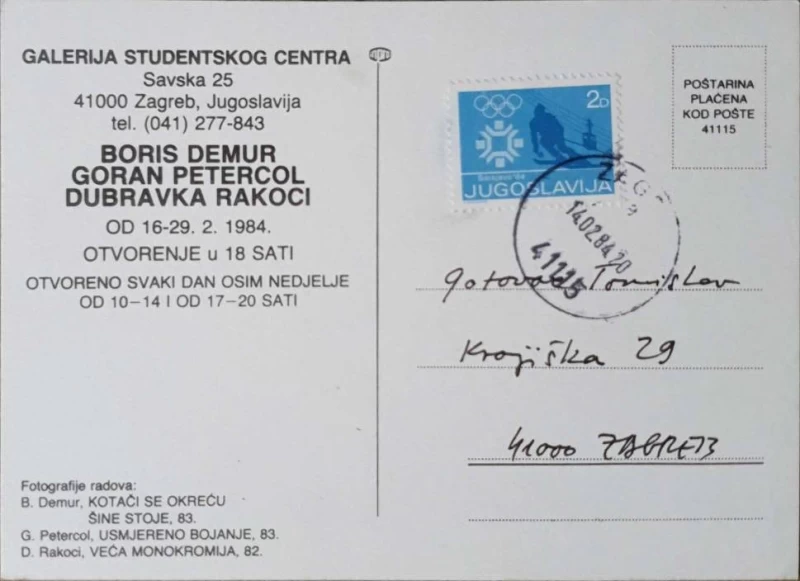 GALERIJA STUDENTSKOG CENTRA
Savska 25
41000 Zagreb, Jugoslavija
tel. (041) 277-843
BORIS DEMUR
GORAN PETERCOL
DUBRAVKA RAKOCI
OD 16-29. 2. 1984.
OTVORENJE u 18 SATI
OTVORENO SVAKI DAN OSIM NEDJELJE
OD 10–14 I OD 17–20 SATI
Fotografije radova:
B. Demur, KOTAČI SE OKREĆU
ŠINE STOJE, 83.
G. Petercol, USMJERENO BOJANJE, 83.
D. Rakoci, VEĆA MONOKROMIJA, 82.
2D
Sarajevo '84
JUGOSLAVIJA
POŠTARINA
PLAĆENA
KOD POŠTE
41115
14028420
41115
Gotovac Tomislav
Krajiška 29
41000 ZAGREB